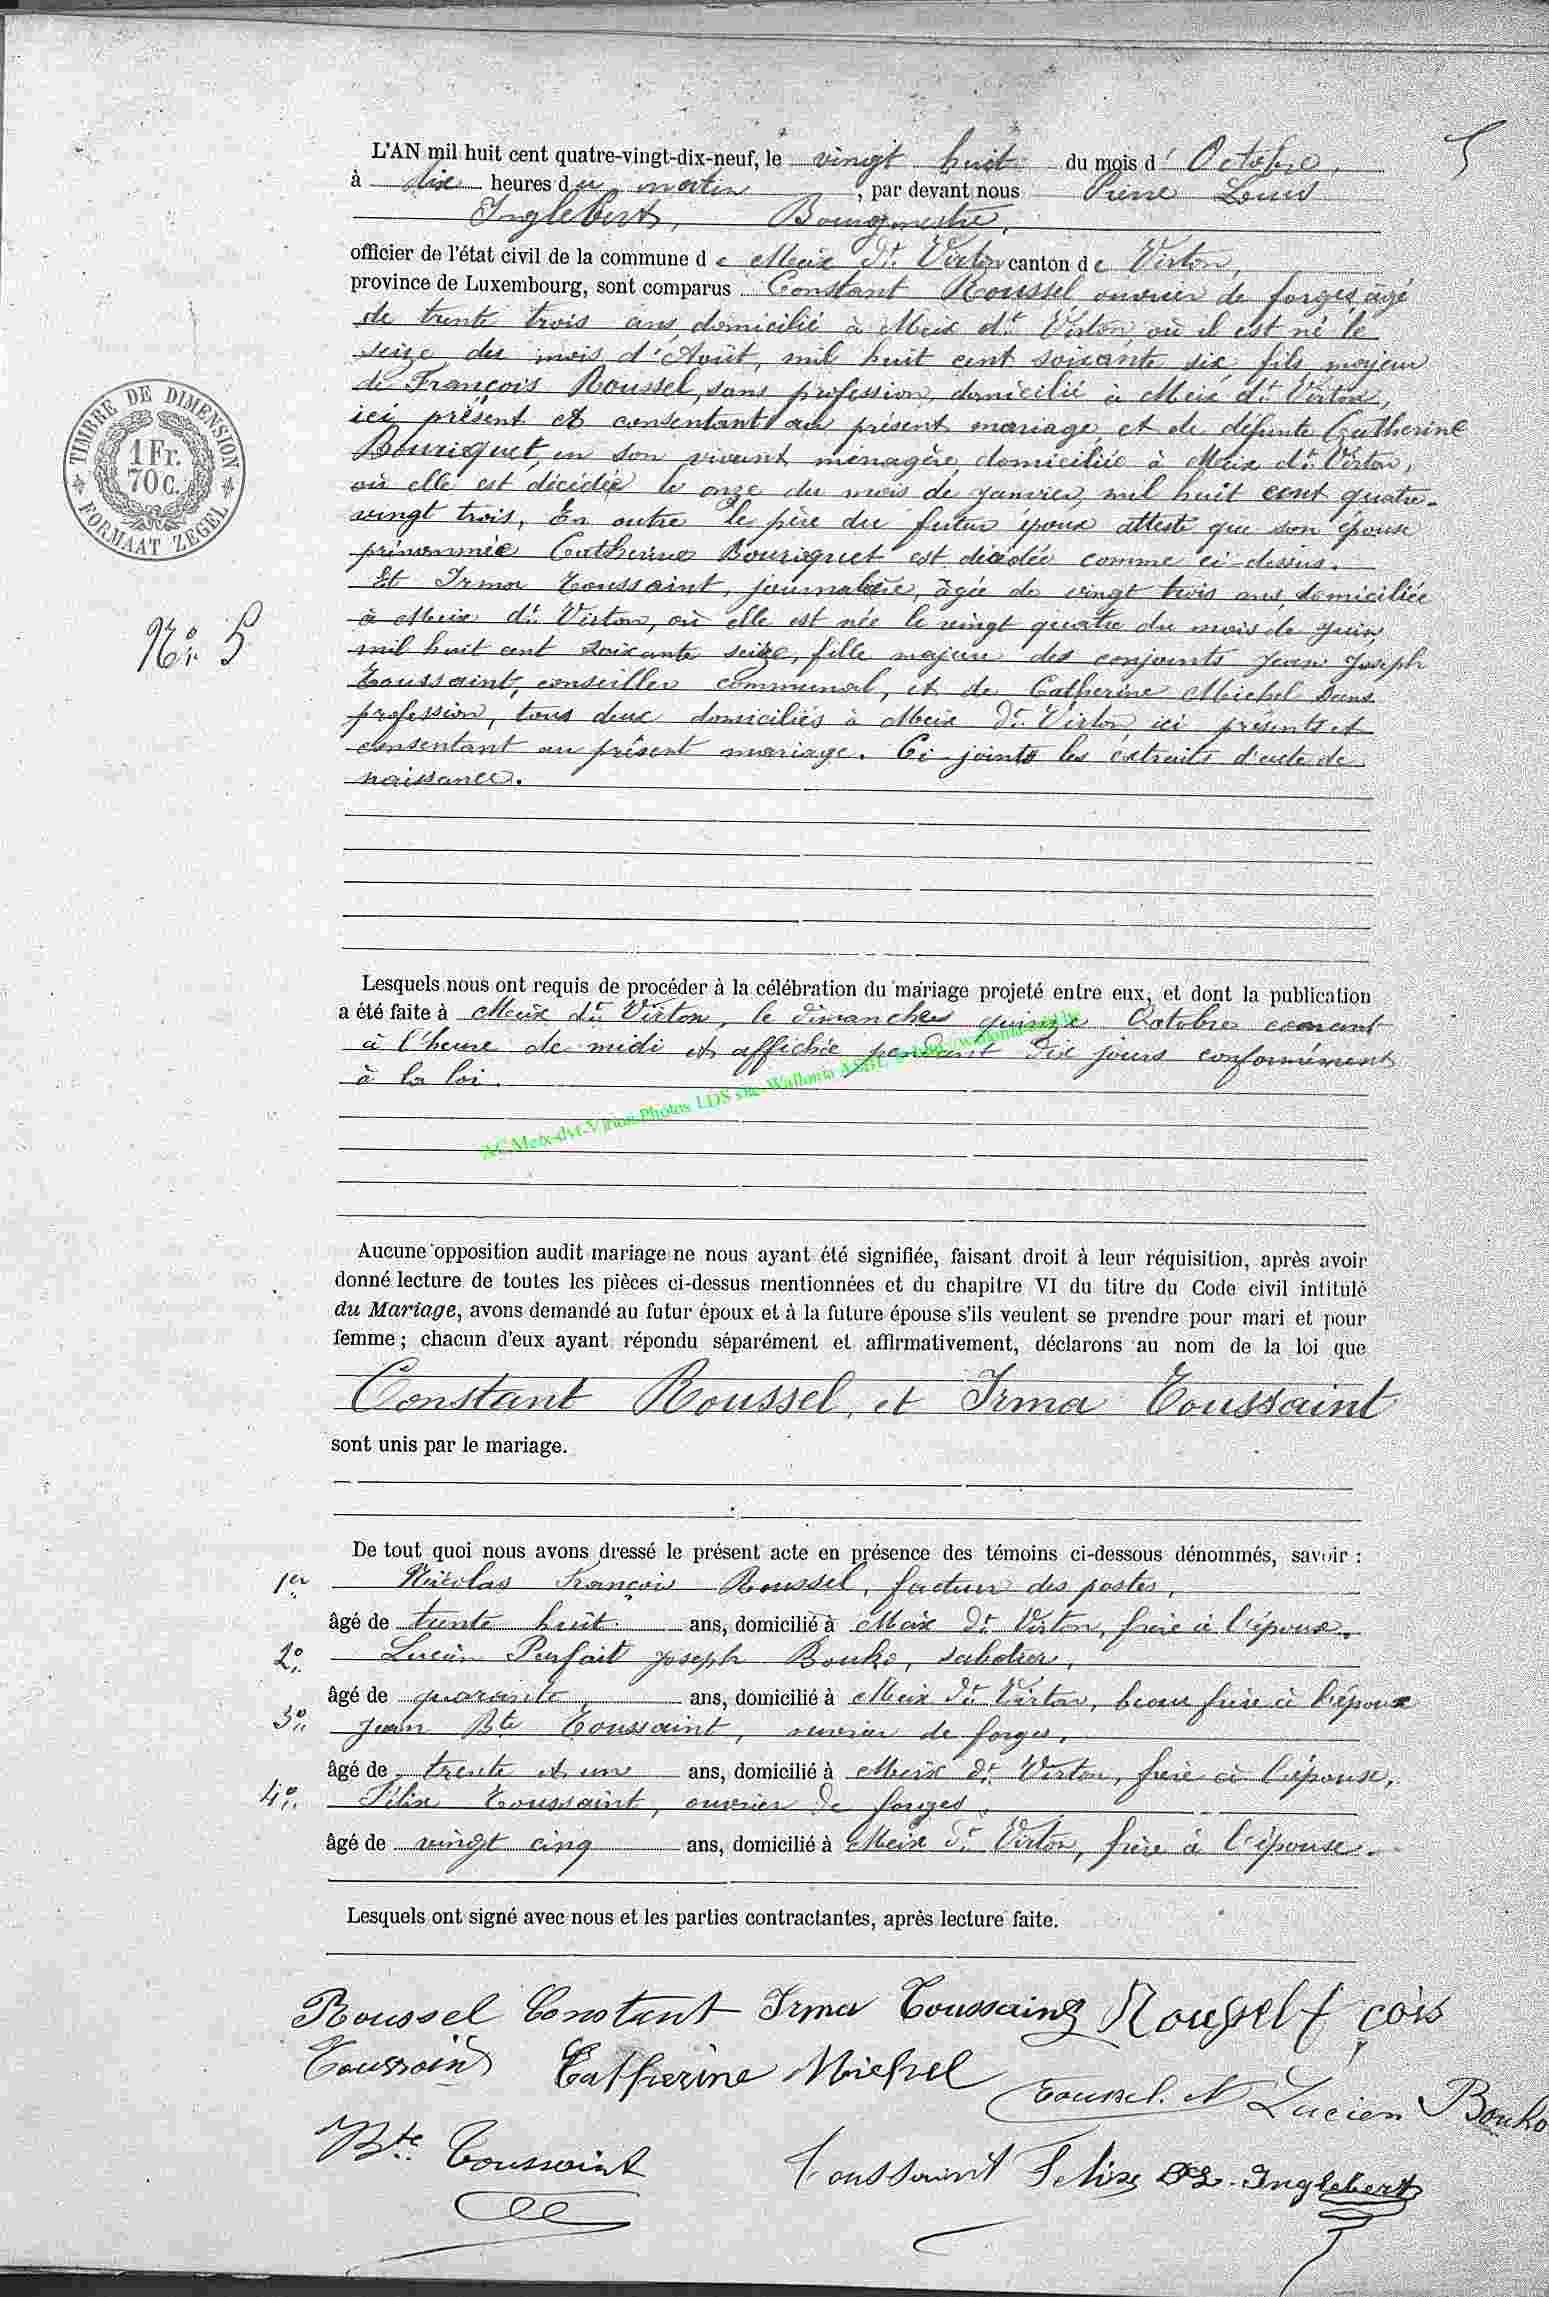 L'AN mil huit cent quatre-vingt-dix-neuf, le vingt huit du mois d' Octobre, 5
à dix heures du matin, par devant nous Pierre Louis
Inglebert, Bourgmestre,
officier de l'état civil de la commune de Meix dt Virton canton de Virton,
province de Luxembourg, sont comparus Constant Roussel ouvrier de forges, âgé
de trente trois ans, domicilié à Meix dt Virton, où il est né le
seize du mois d'Août, mil huit cent soixante six, fils majeur
de François Roussel, sans profession, domicilié à Meix dt Virton,
ici présent et consentant au présent mariage, et de défunte Catherine
Bouricquet, en son vivant ménagère, domiciliée à Meix dt Virton,
où elle est décédée le onze du mois de janvier, mil huit cent quatre-
vingt trois. En outre le père du futur époux atteste que son épouse
prénommée Catherine Bouricquet est décédée comme ci-dessus.
Et Irma Toussaint, journalière, âgée de vingt trois ans, domiciliée
à Meix dt Virton, où elle est née le vingt quatre du mois de juin
mil huit cent soixante seize, fille majeure des conjoints Jean Joseph
Toussaint, conseiller communal, et de Catherine Michel sans
profession, tous deux domiciliés à Meix dt Virton ici présents et
consentant au présent mariage. Ci-joints les extraits d'acte de
naissance.
TIMBRE DE DIMENSION
1 Fr.
70 C.
FORMAAT ZEGEL
No. 5
Lesquels nous ont requis de procéder à la célébration du mariage projeté entre eux, et dont la publication
a été faite à Meix dt Virton, le dimanche quinze Octobre courant
à l'heure de midi et affichée pendant dix jours conformément
à la loi.
AC Meix-dvt-Virton Photos LDS
Aucune opposition audit mariage ne nous ayant été signifiée, faisant droit à leur réquisition, après avoir
donné lecture de toutes les pièces ci-dessus mentionnées et du chapitre VI du titre du Code civil intitulé
du Mariage, avons demandé au futur époux et à la future épouse s'ils veulent se prendre pour mari et pour
femme ; chacun d'eux ayant répondu séparément et affirmativement, déclarons au nom de la loi que
Constant Roussel, et Irma Toussaint
sont unis par le mariage.
De tout quoi nous avons dressé le présent acte en présence des témoins ci-dessous dénommés, savoir :
1er Nicolas François Roussel, facteur des postes,
âgé de trente huit ans, domicilié à Meix dt Virton, frère à l'époux.
2o Lucien Parfait Joseph Bouko, sabotier,
âgé de quarante, ans, domicilié à Meix dt Virton, beau frère à l'époux
3o Jean Bte Toussaint, ouvrier de forges,
âgé de trente et un ans, domicilié à Meix dt Virton, frère à l'épouse.
4o Félix Toussaint, ouvrier de forges,
âgé de vingt cinq ans, domicilié à Meix dt Virton, frère à l'épouse.
Lesquels ont signé avec nous et les parties contractantes, après lecture faite.
Roussel Constant Irma Toussaint Roussel f çois
Toussaint Catherine Michel Roussel. N Lucien Bouko
Bte Toussaint Toussaint Felix PL. Inglebert